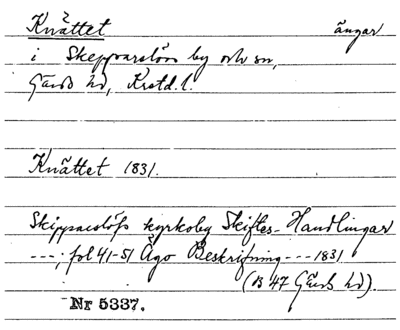 Knättet ängar
i Skepparslövs by och sn,
Gärds hd, Krstd. l.
Knättet 1831.
Skipparslöfs kyrkoby Skiftes-Handlingar
---; fol 41-51 Ägo Beskrifning --- 1831
(B 47 Gärds hd).
Nr 5337.